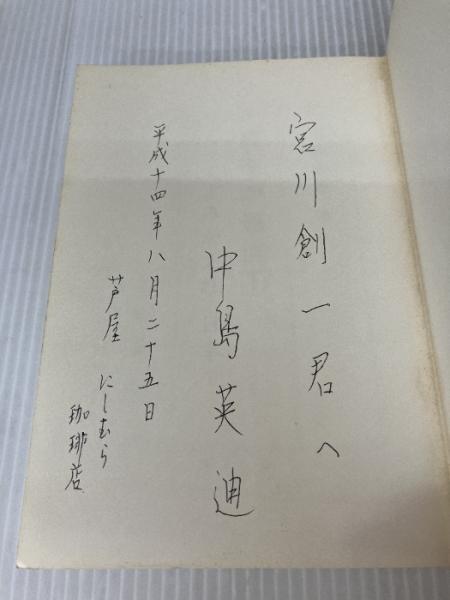 宮川創一君へ
中島英迪
平成十四年八月二十五日
芦屋 にしむら
珈琲店